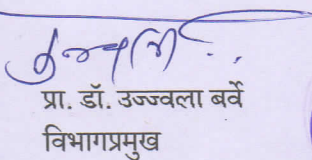 प्रा. डॉ. उज्ज्वला बर्वे
विभागप्रमुख